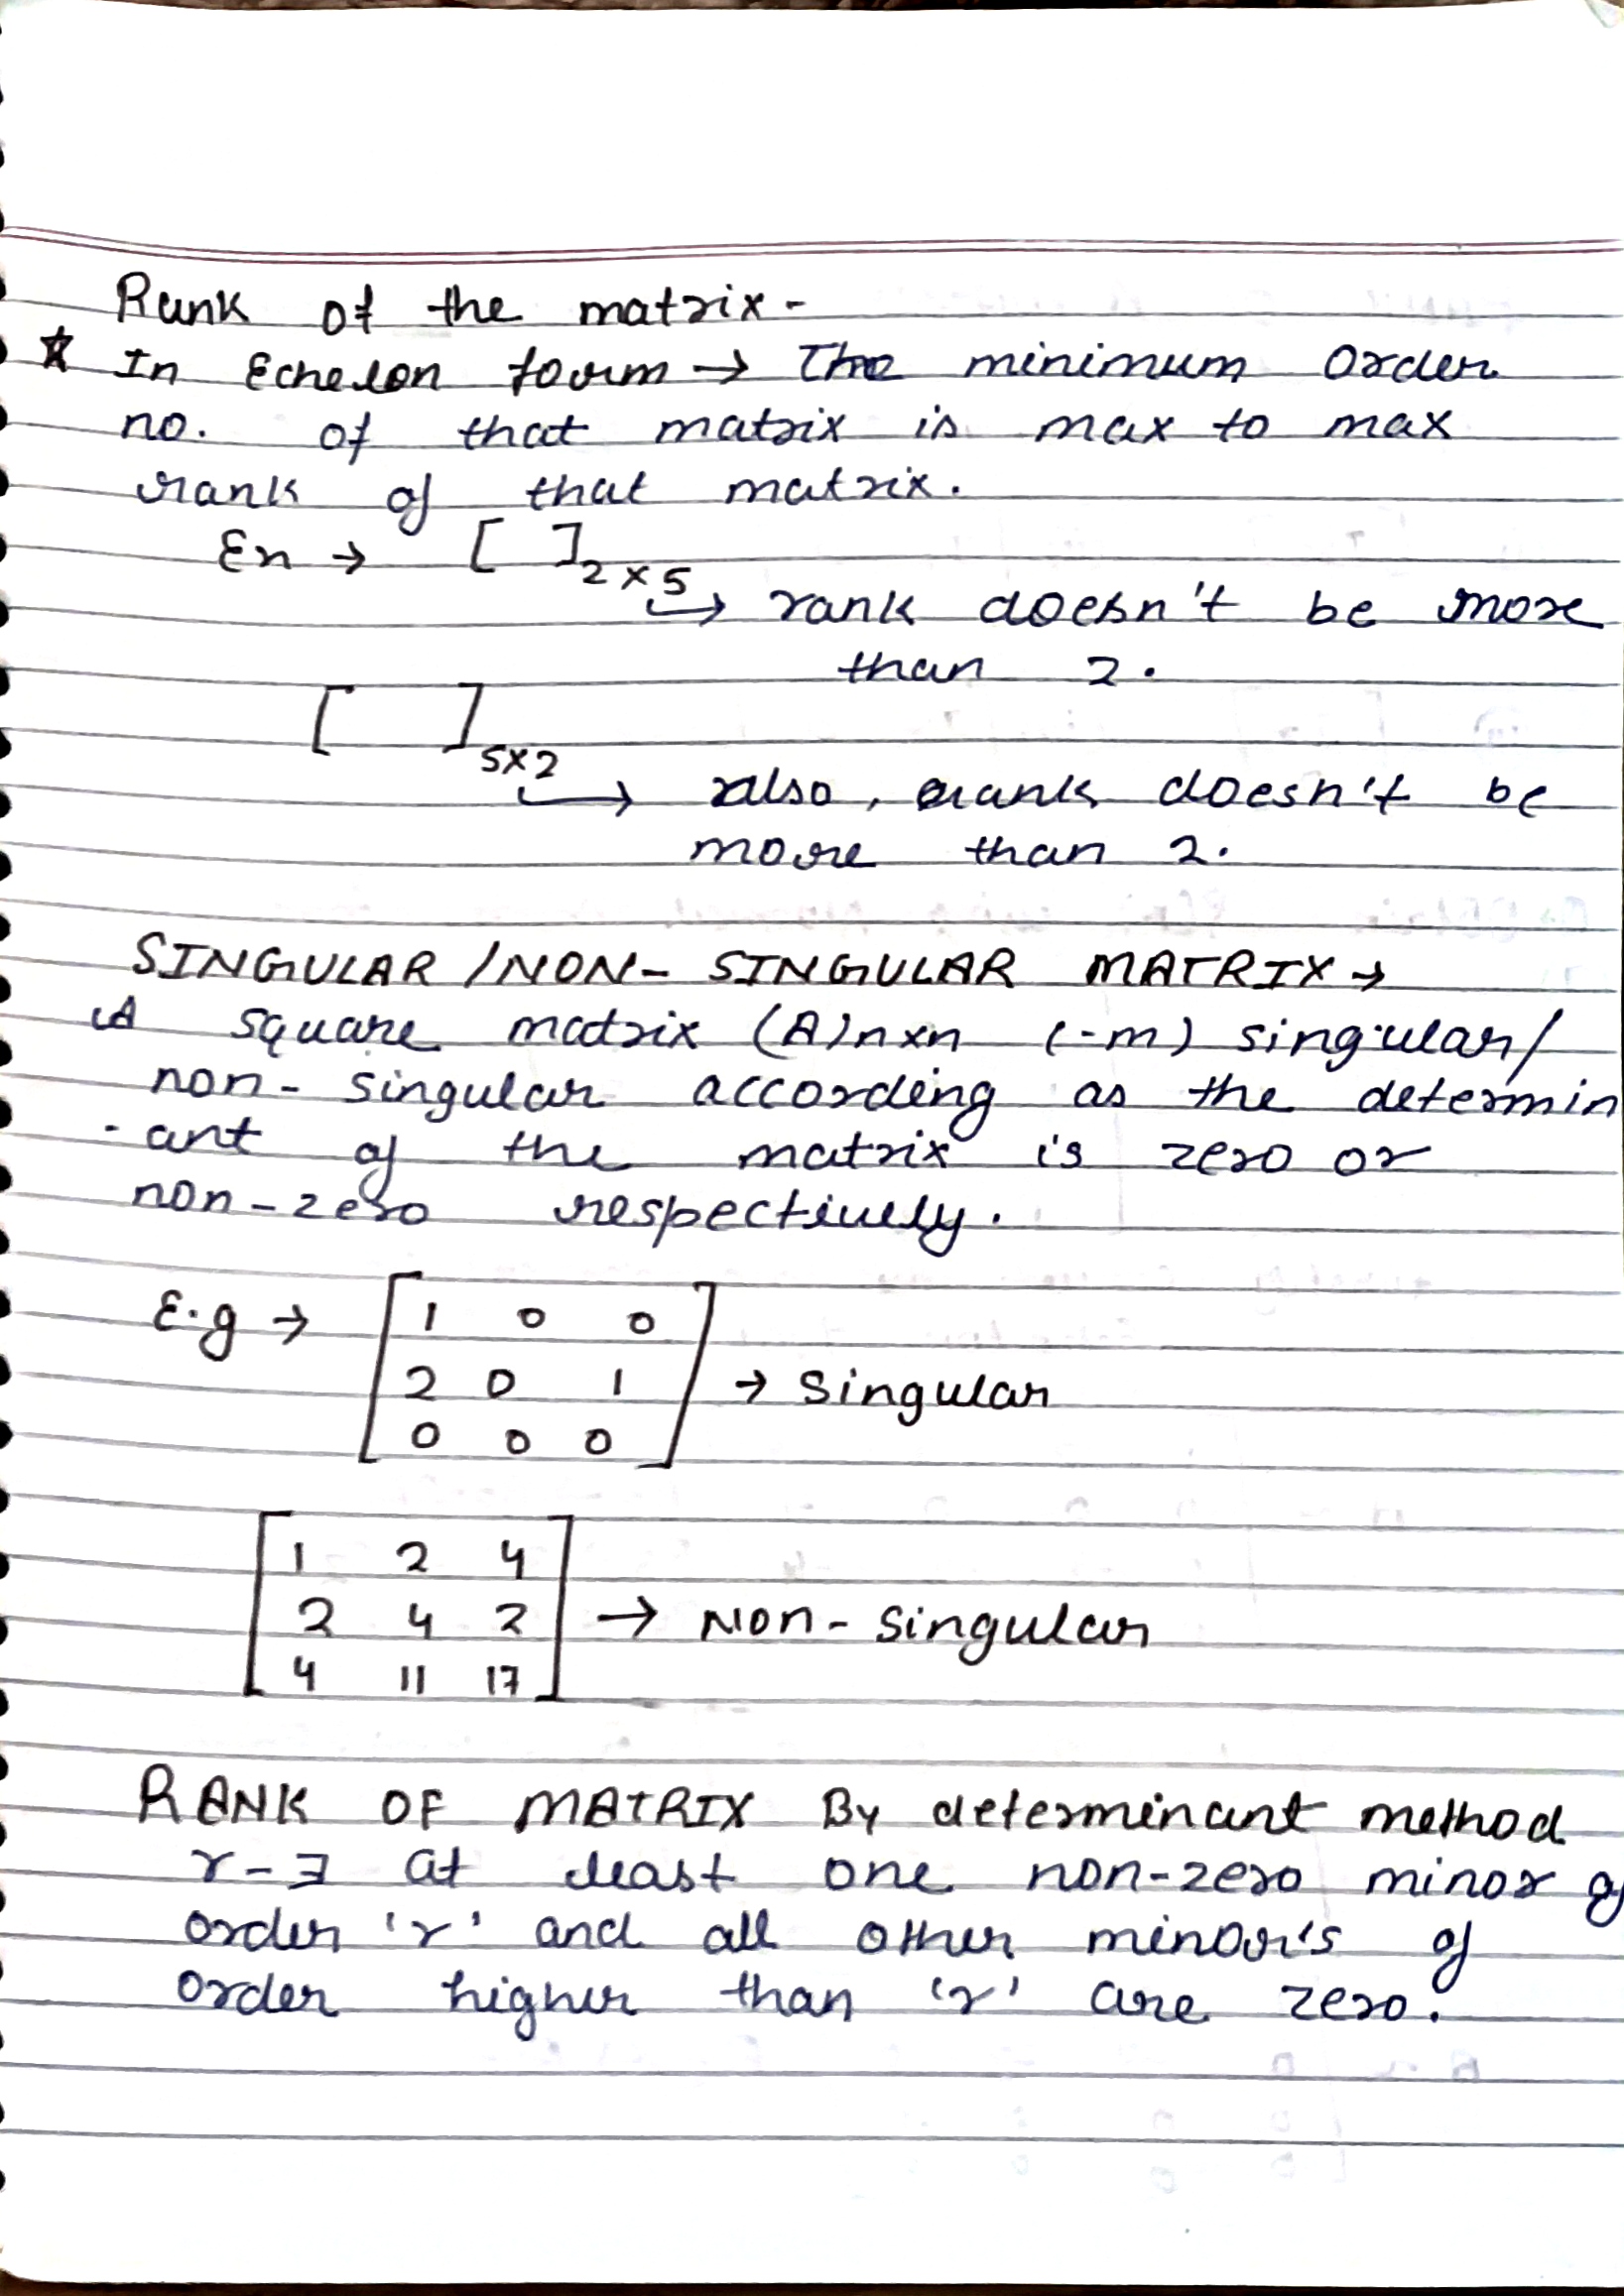 Rank of the matrix -
☆ In Echelon form → The minimum order
no. of that matrix is max to max
rank of that matrix.
Ex → [ ]2×5
→ rank doesn't be more
than 2.
[ ]5×2
→ also, rank doesn't be
more than 2.
SINGULAR / NON- SINGULAR MATRIX →
A square matrix (A)n×n (-m) singular/
non- singular according as the determin
-ant of the matrix is zero or
non-zero respectively.
E.g → [1 0 0
2 0 1 → Singular
0 0 0]
[1 2 4
2 4 2 → Non- Singular
4 11 17]
RANK OF MATRIX By determinant method
r-∃ at least one non-zero minor of
order 'r' and all other minor's of
order higher than 'r' are zero.